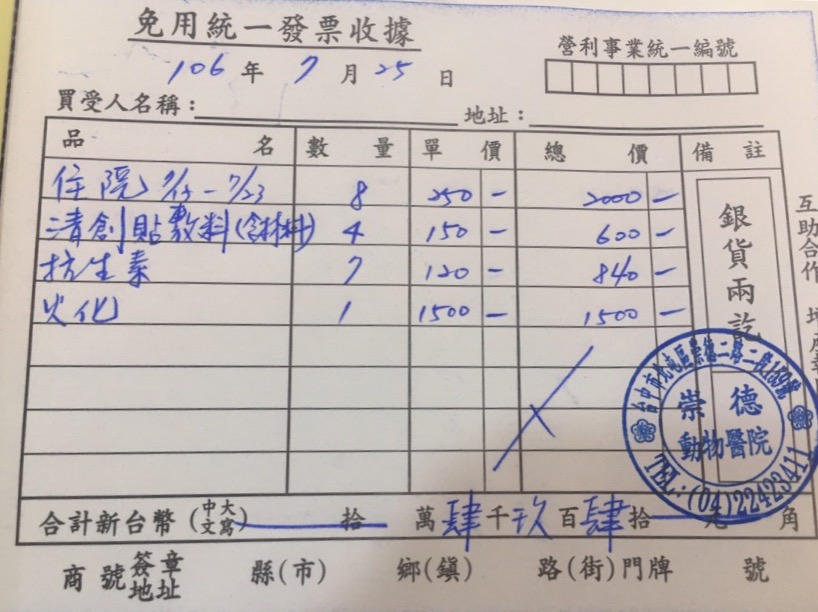 免用統一發票收據
營利事業統一編號
106 年 7 月 25 日
買受人名稱： 地址：
品名 數量 單價 總價 備註
住院 7/15-7/23 8 250 - 2000 -
清創貼敷料(含材料) 4 150 - 600 -
抗生素 7 120 - 840 -
火化 1 1500 - 1500 -
銀貨兩訖
互助合作
台中市北屯區崇德二路二段159號
崇德
動物醫院
TEL:(04)22423411
合計新台幣(中文大寫) 拾 萬肆千玖百肆拾 元 角
商號簽章地址 縣(市) 鄉(鎮) 路(街)門牌 號